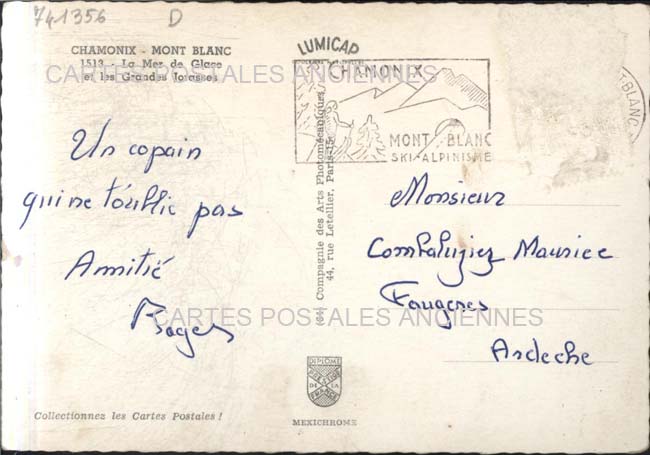 741356 D
CHAMONIX - MONT BLANC
1513 - La Mer de Glace
et les Grandes Jorasses
LUMICAP
CHAMONIX
MONT-BLANC
SKI-ALPINISME
T BLANC
CARTES POSTALES ANCIENNES
Un copain
qui ne t'oublie pas
Amitié
Roger
(64) Compagnie des Arts Photomécaniques
44, rue Letellier, Paris-15
Monsieur
Combaluzier Maurice
Faugères
Ardèche
CARTES POSTALES ANCIENNES
DIPLOME
PRESTIGE
DE LA
FRANCE
Collectionnez les Cartes Postales !
MEXICHROME